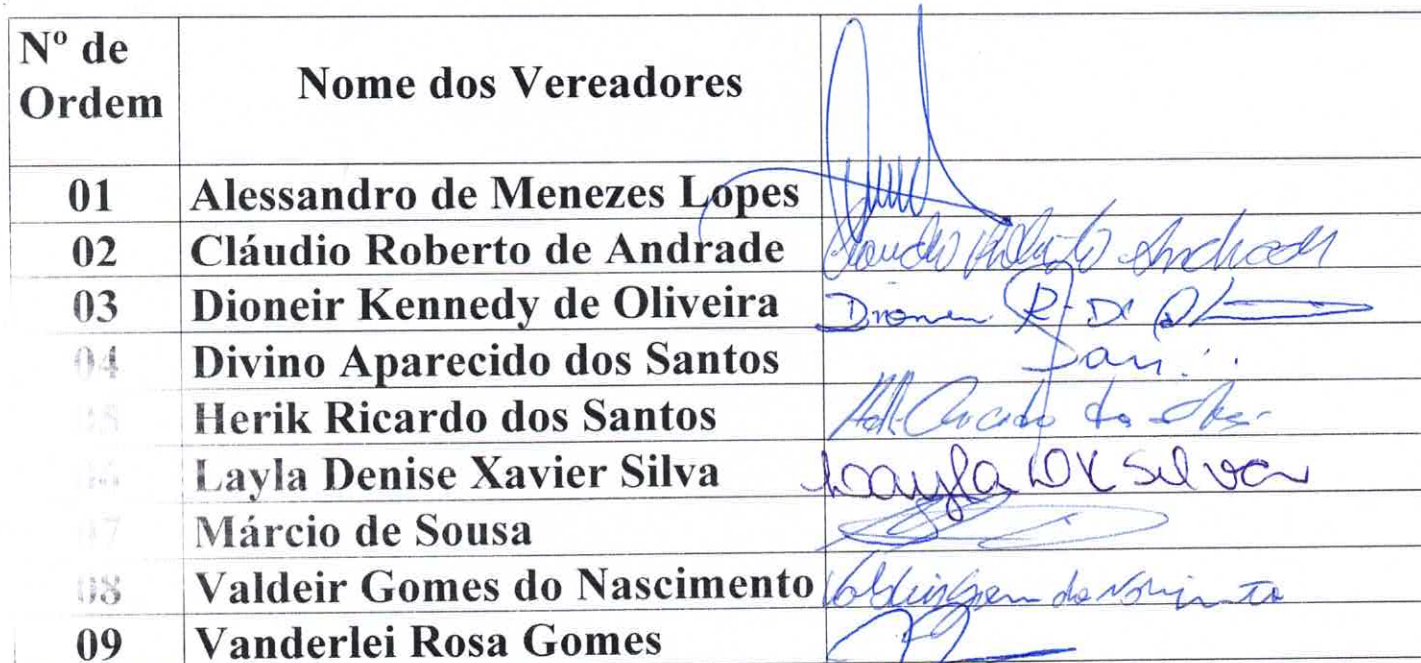 Nº de Ordem Nome dos Vereadores
01 Alessandro de Menezes Lopes
02 Cláudio Roberto de Andrade Claudio Roberto Andrade
03 Dioneir Kennedy de Oliveira
04 Divino Aparecido dos Santos
05 Herik Ricardo dos Santos
06 Layla Denise Xavier Silva Layla DX Silva
07 Márcio de Sousa
08 Valdeir Gomes do Nascimento
09 Vanderlei Rosa Gomes